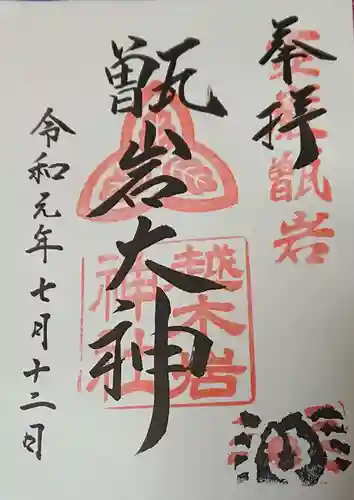 奉拝
甑岩大神
越木岩
神社
令和元年七月十二日